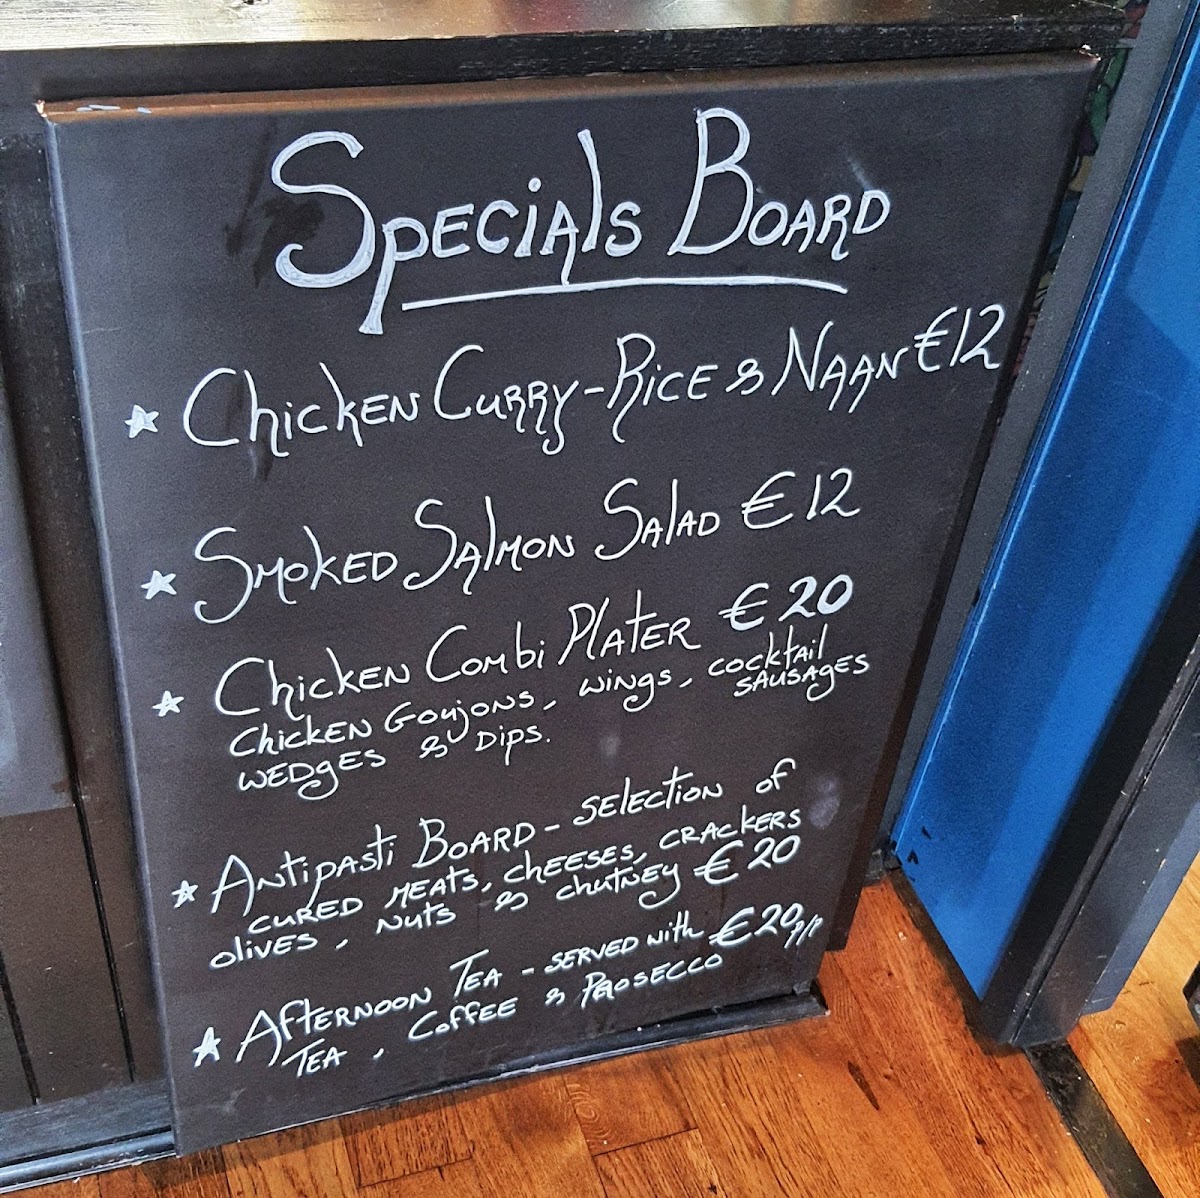 Specials Board
Chicken Curry - Rice & Naan €12
Smoked Salmon Salad €12
Chicken Combi Plater €20
Chicken Goujons, wings, cocktail
sausages
wedges & Dips.
Antipasti Board - selection of
cured meats, cheeses, crackers
olives, nuts & chutney €20
Afternoon Tea - served with €20 p/p
Tea, Coffee & Prosecco